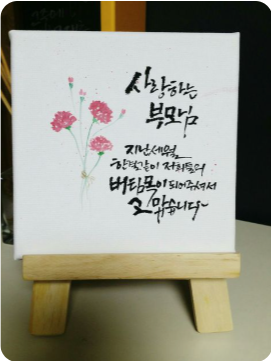 사랑하는
부모님
지난세월
한결같이 저희들의
버팀목이 되어주셔서
고맙습니다~